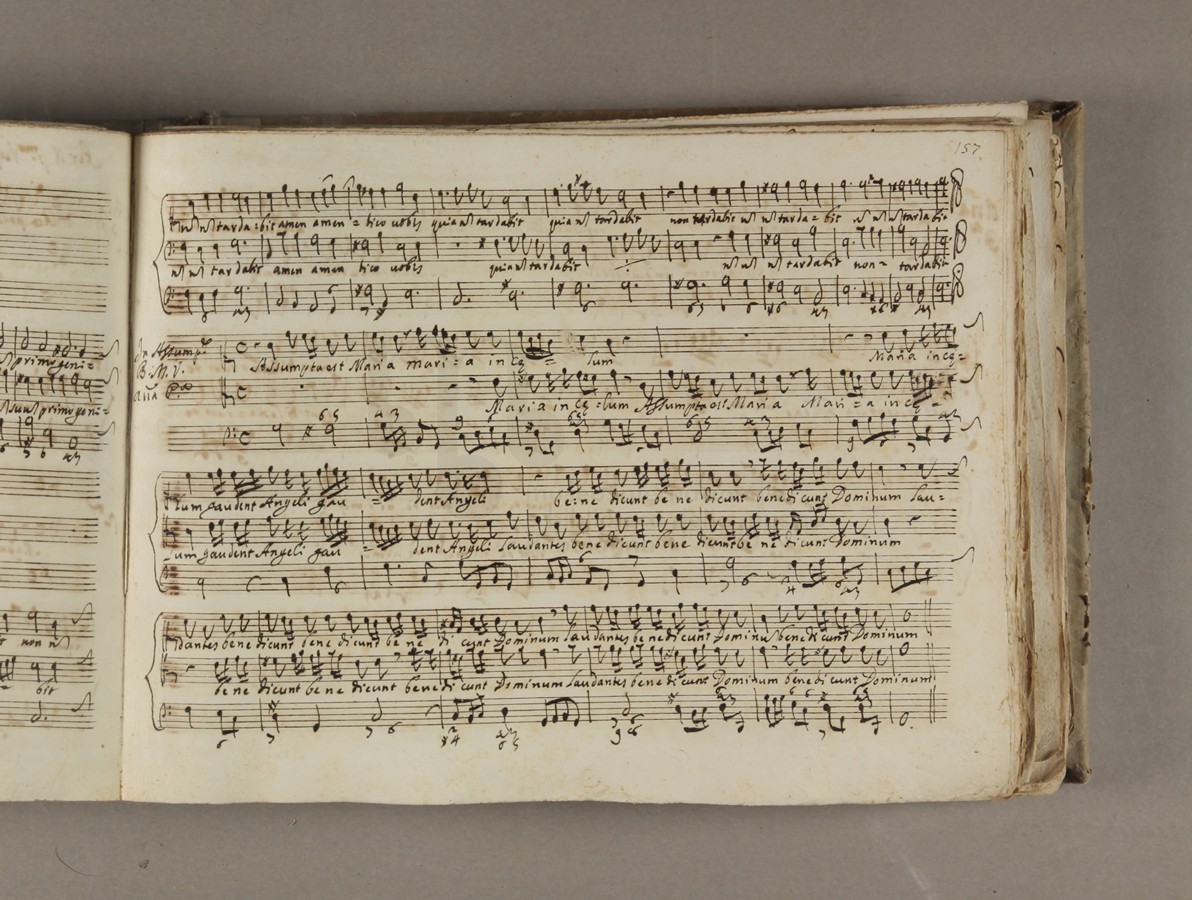 157
tarda = bit amen amen = dico vobis quia n tardabit quia n tardabit non tardabit n n tarda = bit n n n tardabit
primogeni =
n n tardabit amen amen dico vobis quia n tardabit n n n tardabit non = tardabit
In Assump.
B. M. V.
Assumpta est Maria mari = a in cę = lum Maria in cę =
primogeni =
Maria in cę = lum Assumpta est Maria Mari = a in cę =
6 5 4 3
lum gaudent Angeli gau = dent Angeli be = ne dicunt be ne dicunt benedicunt Dominum Lau =
lum gaudent Angeli gau = dent Angeli Laudantes bene dicunt bene dicunt be ne dicunt Dominum
non n
dantes bene dicunt bene dicunt be ne di cunt Dominum Laudantes be nedicunt Dominu benedicunt Dominum
bene dicunt be ne dicunt benedi cunt Dominum Laudantes bene dicunt Dominum benedicunt Dominum
bit